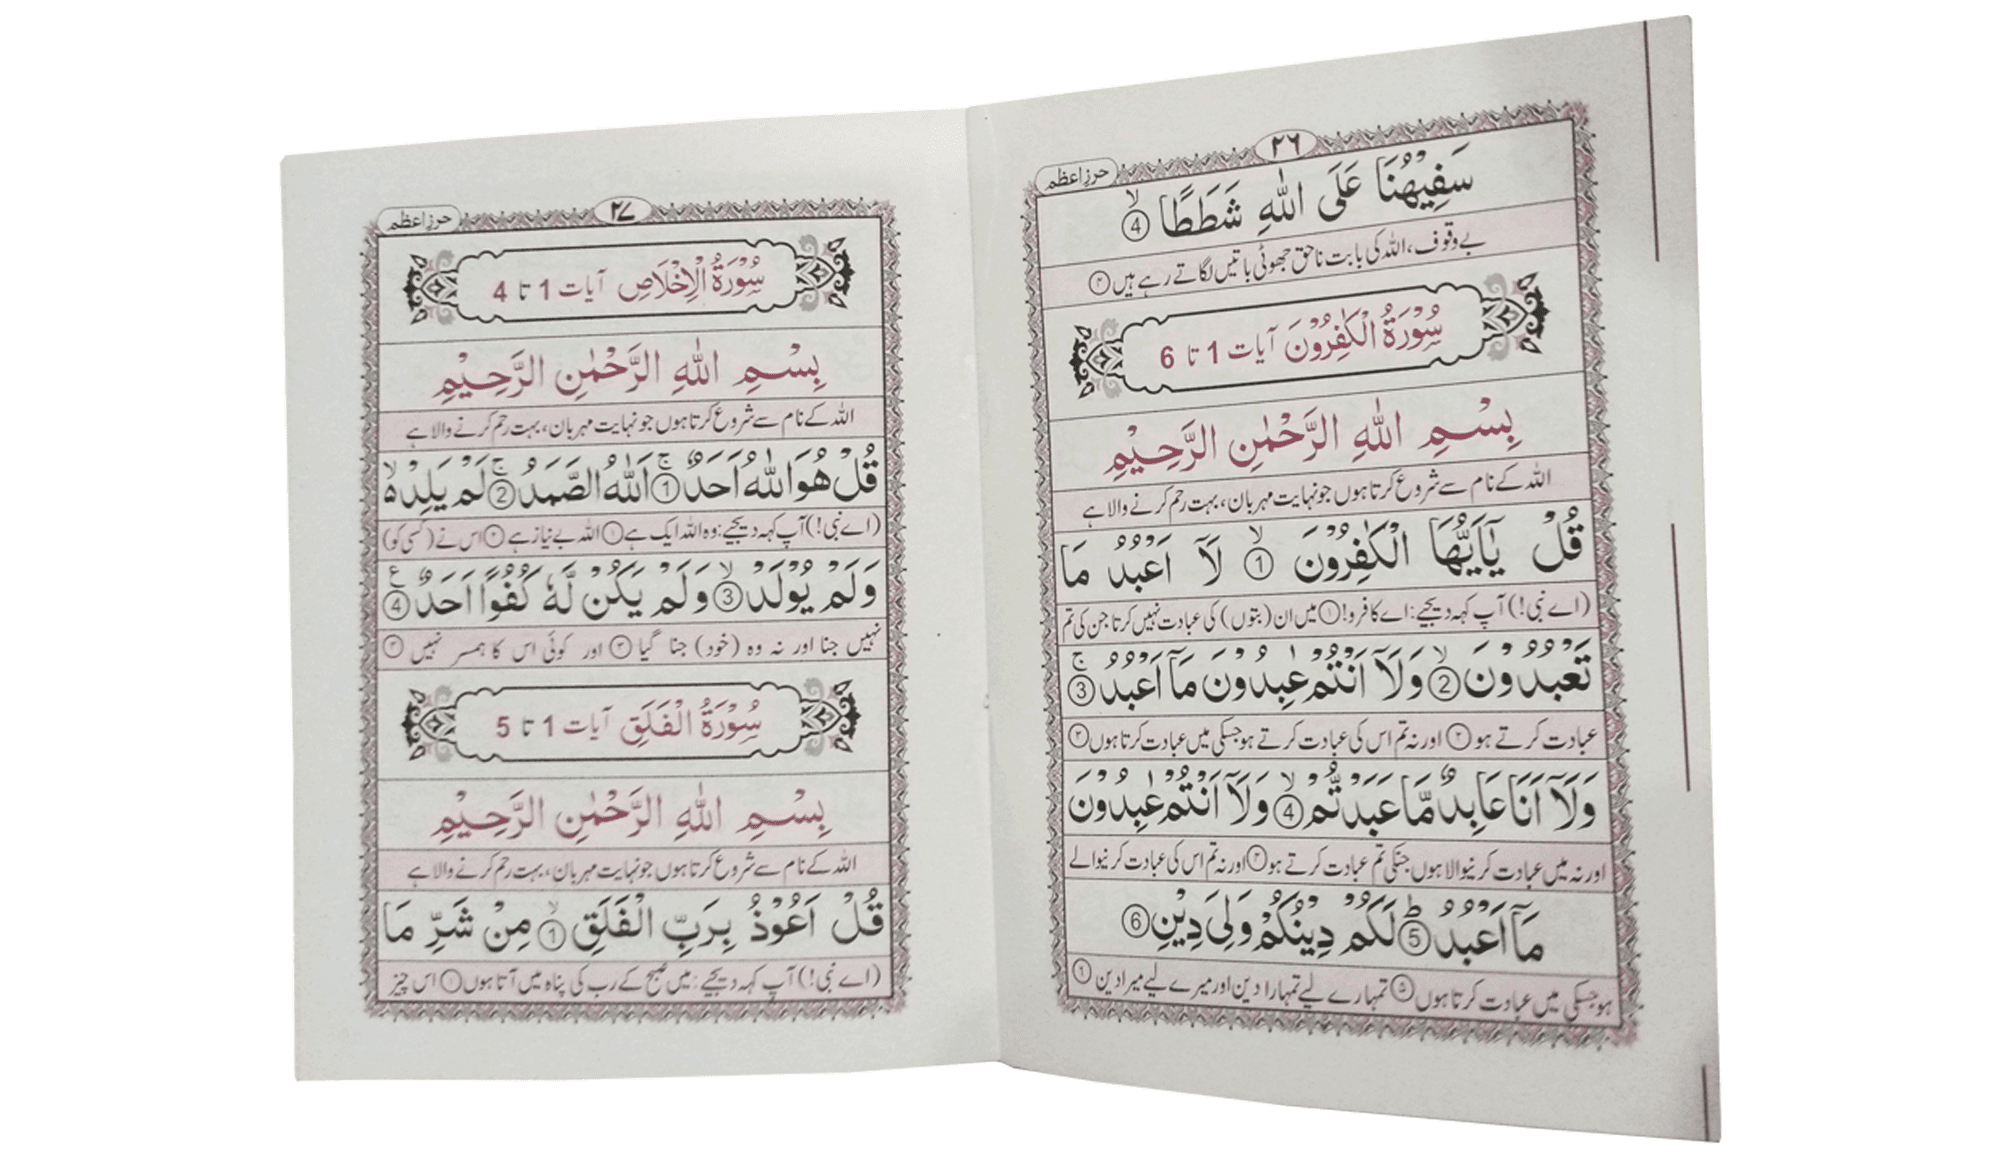 حرزِ اعظم
٢٦
سَفِيْهُنَا عَلَى اللّٰهِ شَطَطًا ۙ④
بے وقوف، اللہ کی بابت ناحق جھوٹی باتیں لگاتے رہے ہیں ۴
سُوْرَةُ الْكٰفِرُوْنَ آیات 1 تا 6
بِسْمِ اللّٰهِ الرَّحْمٰنِ الرَّحِيْمِ
اللہ کے نام سے شروع کرتا ہوں جو نہایت مہربان، بہت رحم کرنے والا ہے
قُلْ يٰٓاَيُّهَا الْكٰفِرُوْنَ ۙ① لَآ اَعْبُدُ مَا
(اے نبی!) آپ کہہ دیجیے: اے کافرو! ۱ میں ان (بتوں) کی عبادت نہیں کرتا جن کی تم
تَعْبُدُوْنَ ۙ② وَلَآ اَنْتُمْ عٰبِدُوْنَ مَآ اَعْبُدُ ۚ③
عبادت کرتے ہو ۲ اور نہ تم اس کی عبادت کرتے ہو جسکی میں عبادت کرتا ہوں ۳
وَلَآ اَنَا عَابِدٌ مَّا عَبَدْتُّمْ ۙ④ وَلَآ اَنْتُمْ عٰبِدُوْنَ
اور نہ میں عبادت کرنیوالا ہوں جنکی تم عبادت کرتے ہو ۴ اور نہ تم اس کی عبادت کرنیوالے
مَآ اَعْبُدُ ؕ⑤ لَكُمْ دِيْنُكُمْ وَلِيَ دِيْنِ ⑥
ہو جسکی میں عبادت کرتا ہوں ۵ تمہارے لیے تمہارا دین اور میرے لیے میرا دین ۶
حرزِ اعظم
٢٧
سُوْرَةُ الْاِخْلَاصِ آیات 1 تا 4
بِسْمِ اللّٰهِ الرَّحْمٰنِ الرَّحِيْمِ
اللہ کے نام سے شروع کرتا ہوں جو نہایت مہربان، بہت رحم کرنے والا ہے
قُلْ هُوَ اللّٰهُ اَحَدٌ ۚ① اَللّٰهُ الصَّمَدُ ۚ② لَمْ يَلِدْ ۙ
(اے نبی!) آپ کہہ دیجیے: وہ اللہ ایک ہے ۱ اللہ بے نیاز ہے ۲ اس نے (کسی کو)
وَلَمْ يُوْلَدْ ۙ③ وَلَمْ يَكُنْ لَّهٗ كُفُوًا اَحَدٌ ۧ④
نہیں جنا اور نہ وہ (خود) جنا گیا ۳ اور کوئی اس کا ہمسر نہیں ۴
سُوْرَةُ الْفَلَقِ آیات 1 تا 5
بِسْمِ اللّٰهِ الرَّحْمٰنِ الرَّحِيْمِ
اللہ کے نام سے شروع کرتا ہوں جو نہایت مہربان، بہت رحم کرنے والا ہے
قُلْ اَعُوْذُ بِرَبِّ الْفَلَقِ ۙ① مِنْ شَرِّ مَا
(اے نبی!) آپ کہہ دیجیے: میں صبح کے رب کی پناہ میں آتا ہوں ۱ اس چیز